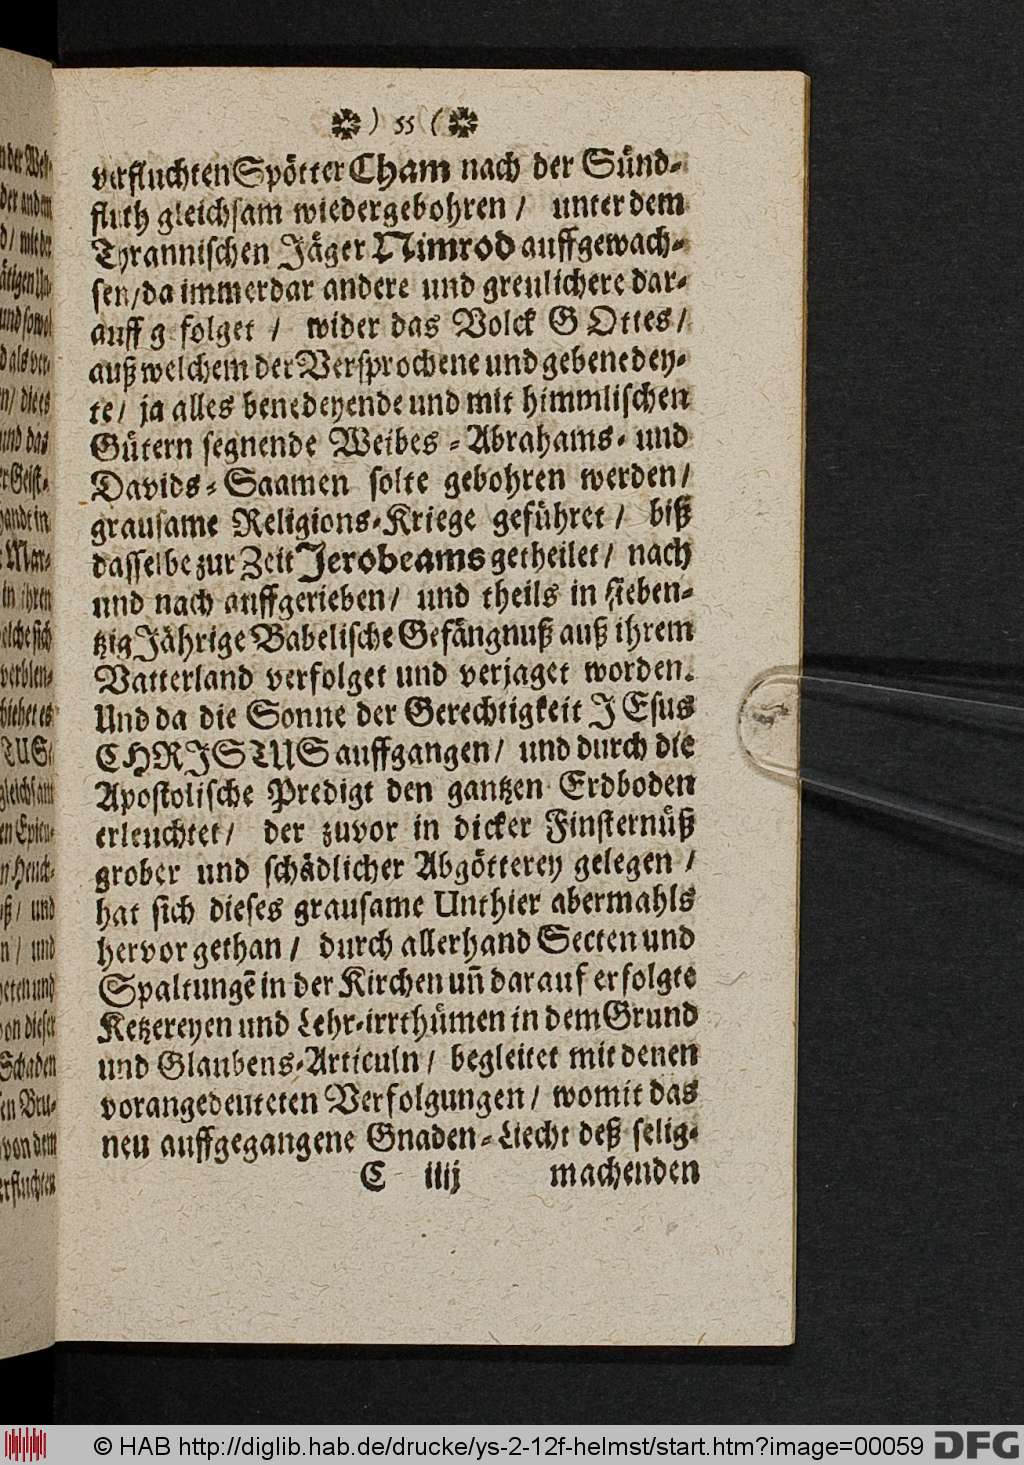 ) 55 (
verfluchten Spötter Cham nach der Sünd-
fluth gleichsam wiedergebohren / unter dem
Tyrannischen Jäger Nimrod auffgewach-
sen/da immerdar andere und greulichere dar-
auff g folget / wider das Volck GOttes/
auß welchem der Versprochene und gebenedey-
te/ ja alles benedeyende und mit himmlischen
Gütern segnende Weibes - Abrahams- und
Davids - Saamen solte gebohren werden/
grausame Religions-Kriege geführet / biß
dasselbe zur Zeit Jerobeams getheilet/ nach
und nach auffgerieben/ und theils in sieben-
tzig Jährige Babelische Gefängnuß auß ihrem
Vatterland verfolget und verjaget worden.
Und da die Sonne der Gerechtigkeit JEsus
CHRISTUS auffgangen/ und durch die
Apostolische Predigt den gantzen Erdboden
erleuchtet/ der zuvor in dicker Finsternüß
grober und schädlicher Abgötterey gelegen /
hat sich dieses grausame Unthier abermahls
hervor gethan/ durch allerhand Secten und
Spaltungē in der Kirchen un̄ darauf erfolgte
Ketzereyen und Lehr-irrthümen in dem Grund
und Glaubens-Articuln/ begleitet mit denen
vorangedeuteten Verfolgungen/ womit das
neu auffgegangene Gnaden-Liecht deß selig-
C iiij machenden
© HAB http://diglib.hab.de/drucke/ys-2-12f-helmst/start.htm?image=00059 DFG